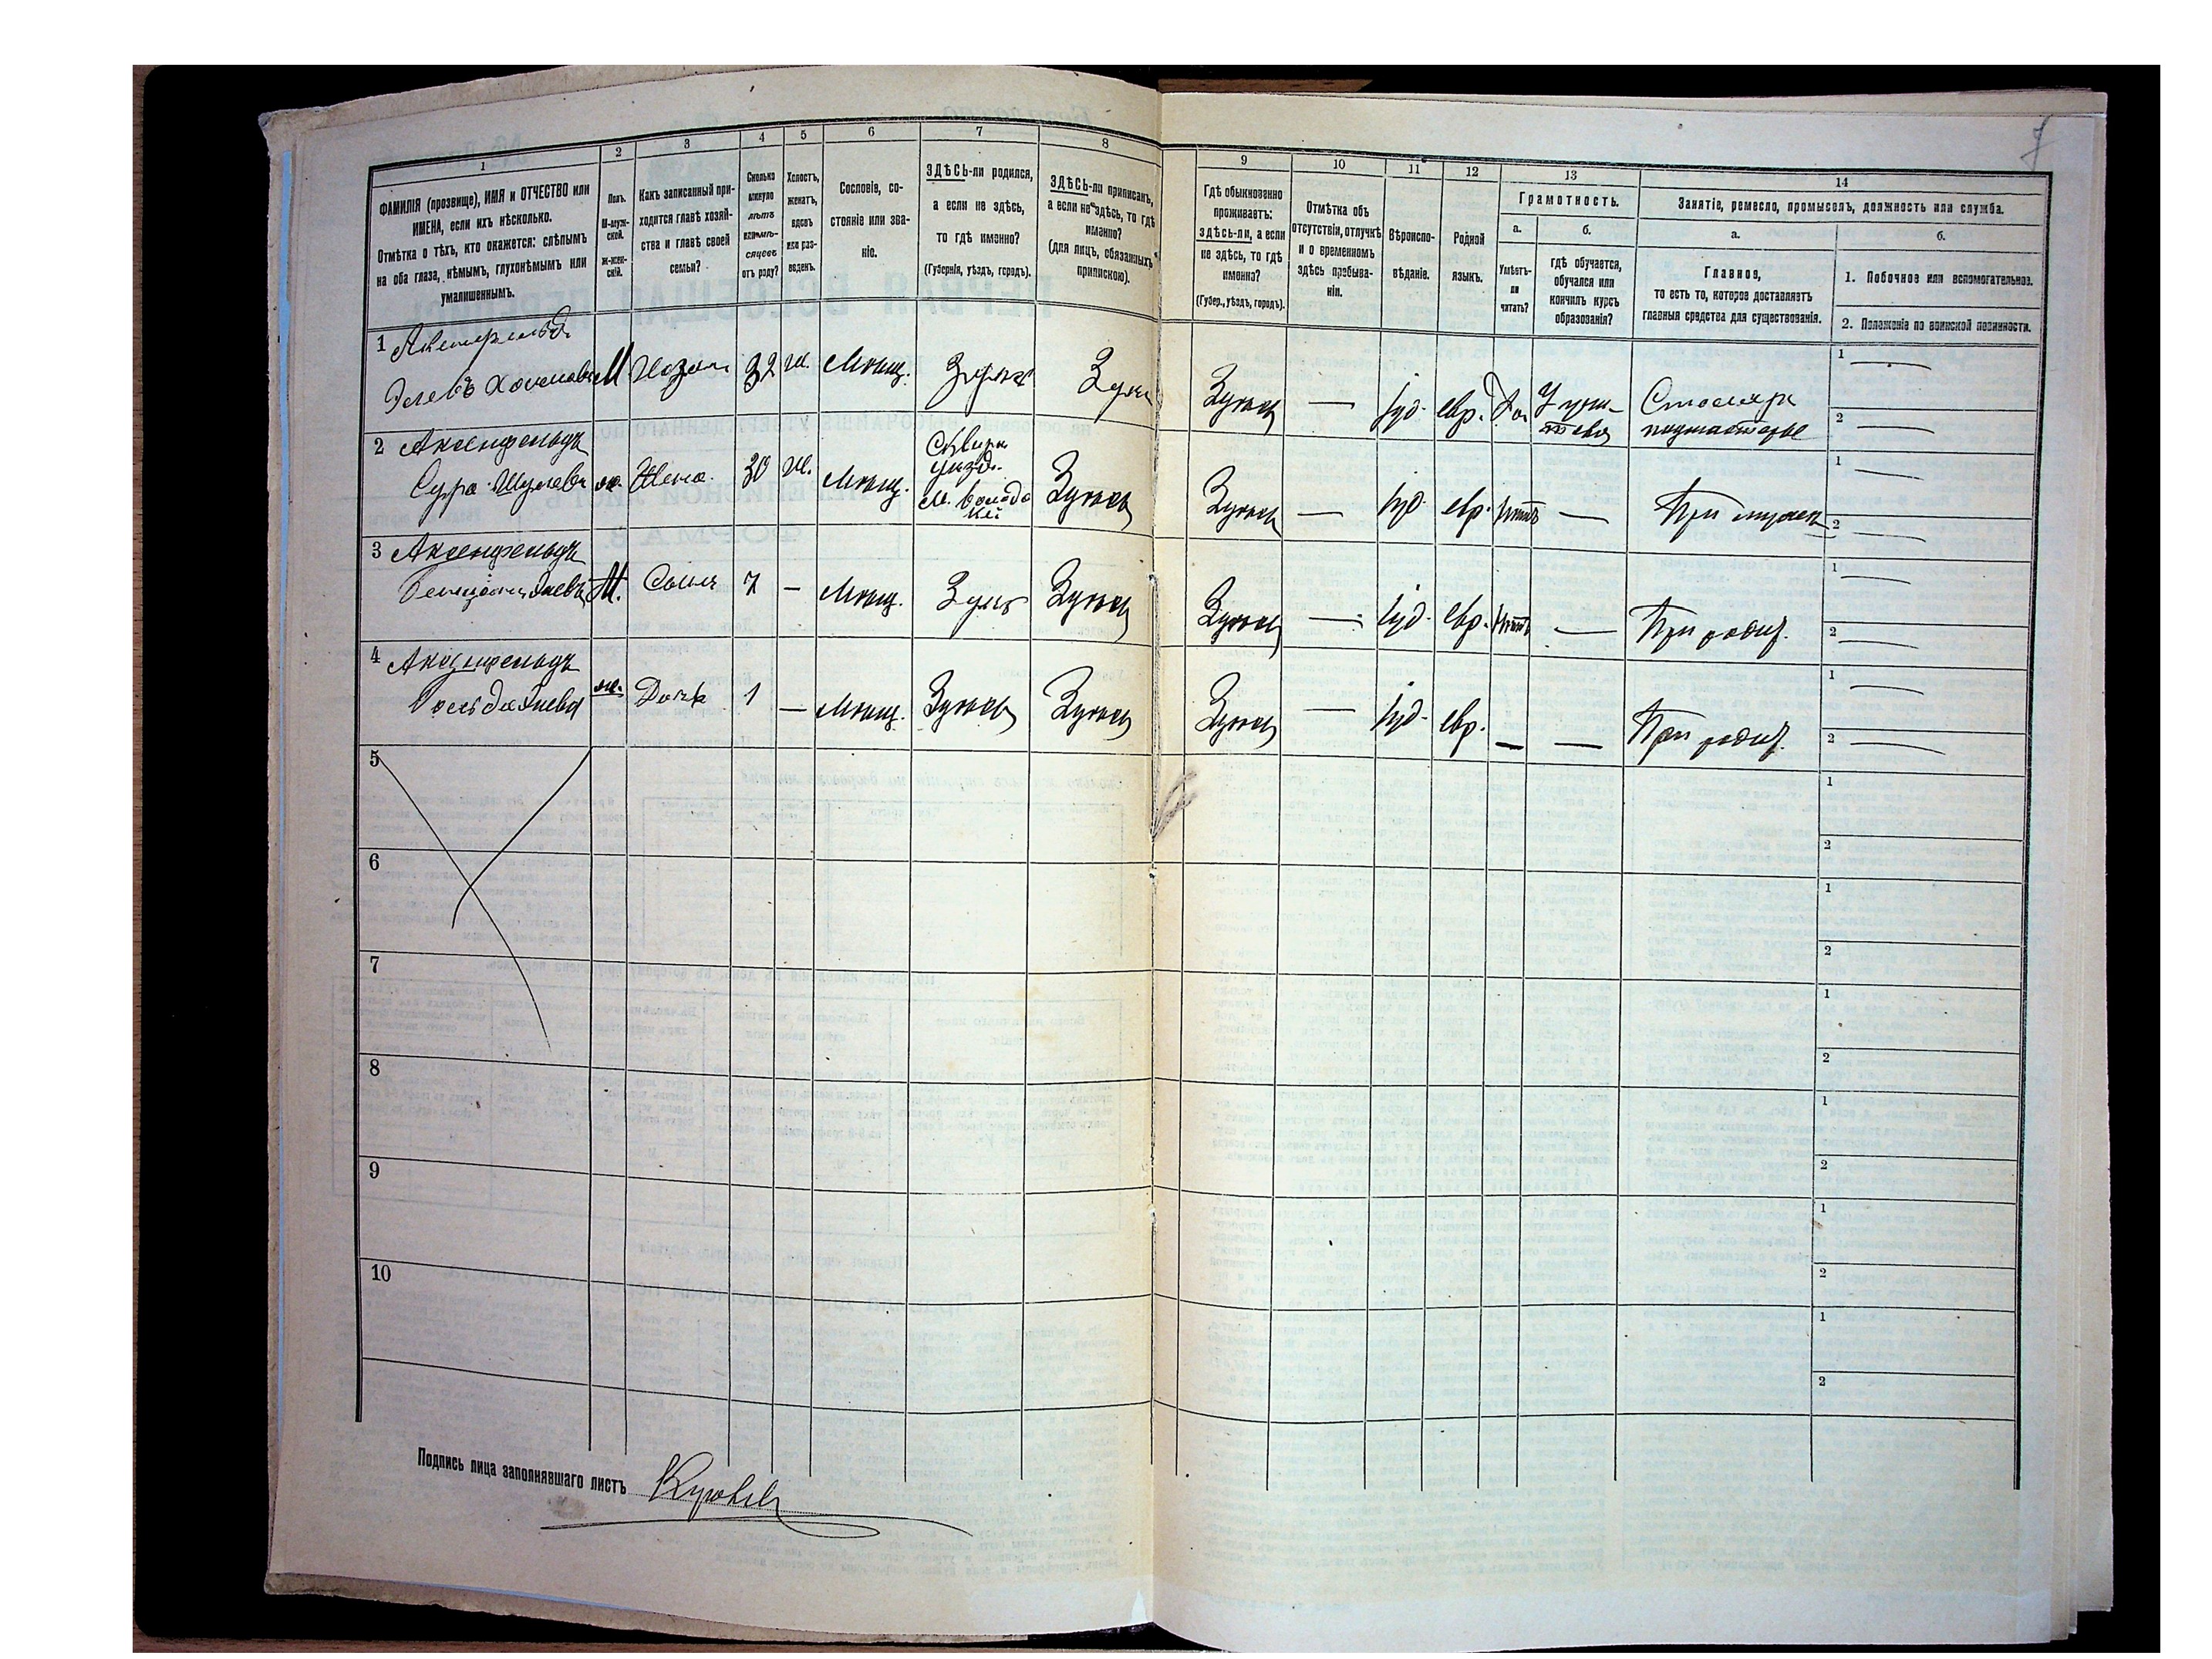 7
1 2 3 4 5 6 7 8 9 10 11 12 13 14
ФАМИЛІЯ (прозвище), ИМЯ и ОТЧЕСТВО или
ИМЕНА, если ихъ нѣсколько.
Отмѣтка о тѣхъ, кто окажется: слѣпымъ
на оба глаза, нѣмымъ, глухонѣмымъ или
умалишеннымъ.
Полъ.
М-муж-
ской.
Ж-жен-
скій.
Какъ записанный при-
ходится главѣ хозяй-
ства и главѣ своей
семьи?
Сколько
минуло
лѣтъ
или мѣ-
сяцевъ
отъ роду?
Холостъ,
женатъ,
вдовъ
или раз-
веденъ.
Сословіе, со-
стояніе или зва-
ніе.
ЗДѢСЬ-ли родился,
а если не здѣсь,
то гдѣ именно?
(Губернія, уѣздъ, городъ).
ЗДѢСЬ-ли приписанъ,
а если не здѣсь, то гдѣ
именно?
(для лицъ, обязанныхъ
припискою).
Гдѣ обыкновенно
проживаетъ:
здѣсь-ли, а если
не здѣсь, то гдѣ
именно?
(Губер., уѣздъ, городъ).
Отмѣтка объ
отсутствіи, отлучкѣ
и о временномъ
здѣсь пребыва-
ніи.
Вѣроиспо-
вѣданіе.
Родной
языкъ.
Грамотность.
а.
Умѣетъ-
ли
читать?
б.
гдѣ обучается,
обучался или
кончилъ курсъ
образованія?
Занятіе, ремесло, промыселъ, должность или служба.
а.
Главное,
то есть то, которое доставляетъ
главныя средства для существованія.
б.
1. Побочное или вспомогательное.
2. Положеніе по воинской повинности.
1 Аксенфельдъ
М 32 ж. Мѣщ. Здѣсь Здѣсь Здѣсь — Іуд. евр. Да Учи- Столяръ 1 —
теля подмастерье 2 —
2 Аксенфельдъ
Сура ж. Жена 30 ж. Мѣщ. Здѣсь Здѣсь — Іуд. евр. Нѣтъ — При мужѣ 1 — 2 —
3 Аксенфельдъ
М. Сынъ 7 — Мѣщ. Здѣсь Здѣсь Здѣсь — Іуд. евр. Нѣтъ — При родит. 1 — 2 —
4 Аксенфельдъ
ж. Дочь 1 — Мѣщ. Здѣсь Здѣсь Здѣсь — Іуд. евр. — — При родит. 1 — 2 —
5 1 2
6 1 2
7 1 2
8 1 2
9 1 2
10 1 2
Подпись лица заполнявшаго листъ